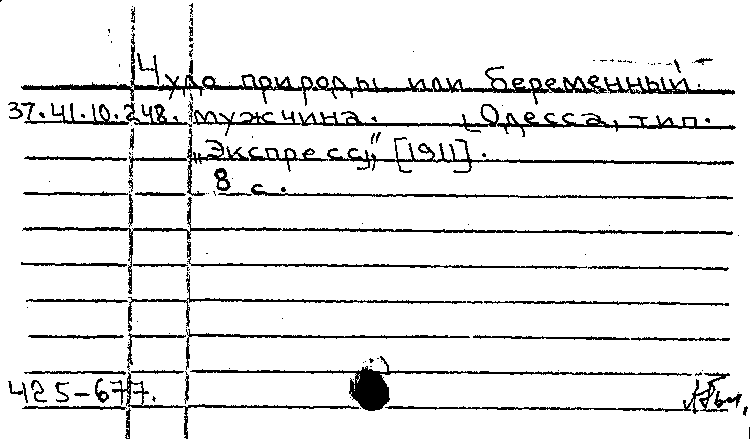 Чудо природы или беременный
37.41.10.248. мужчина. Одесса, тип.
„Экспресс" [1911].
8 с.
425-677.